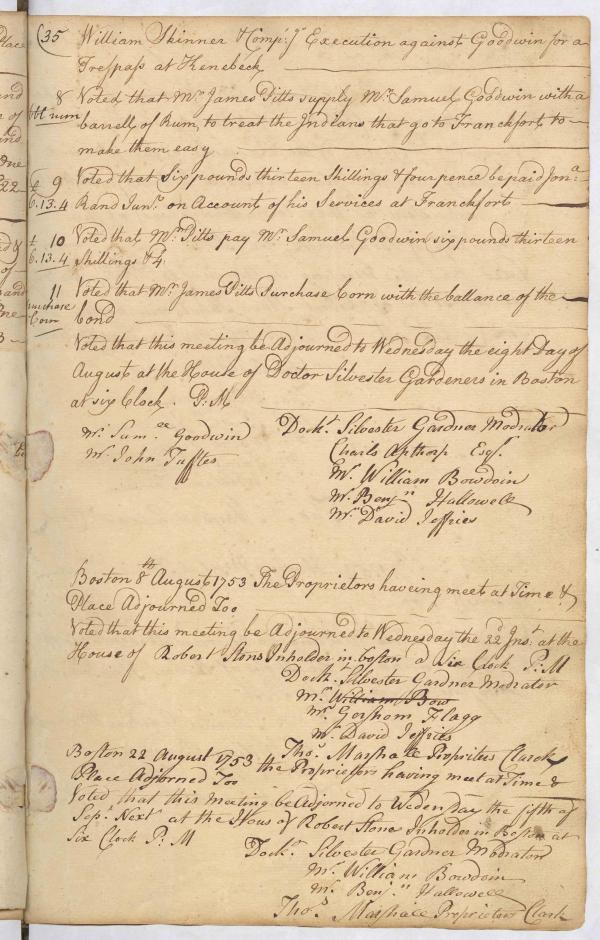 35
William Skinner & Comp.s Execution against Goodwin for a
Trespass at Kenebeck
8 Voted that Mr. James Pitts supply Mr. Samuel Goodwin with a
bbl rum barrell of Rum, to treat the Indians that go to Franckfort to
make them easy
£ 9 Voted that Six pounds thirteen Shillings & four pence be paid Jona.
6.13.4 Rand Junr. on Account of his Services at Franckfort
£ 10 Voted that Mr. Pitts pay Mr. Samuel Goodwin six pounds thirteen
6.13.4 Shillings & 4
11 Voted that Mr. James Pitts Purchase Corn with the ballance of the
purchase Corn bond
Voted that this meeting be Adjourned to Wednesday the eight Day of
August at the House of Doctor Silvester Gardeners in Boston
at six Clock. P:M
Mr. Sam.el Goodwin
Mr. John Tuffles
Dockr. Silvester Gardner Modrator
Charls Apthorp Esq.
Mr. William Bowdoin
Mr. Benjn. Hallowell
Mr. David Jeffries
Boston 8th August 1753 The Proprietors haveing meet at Time &
Place Adjourned Too
Voted that this meeting be Adjourned to Wednesday the 22d Inst. at the
House of Robert Stons Inholder in boston a Six Clock P:M
Dockr. Silvester Gardner Modrator
Mr. William Bow
Mr. Gorshom Flagg
Mr. David Jeffries
Thos. Marshall Propriters Clark
Boston 22 August 1753 the Proprietors having meet at Time &
Place Adjorned Too
Voted that this meeting be Adjorned to Wedenday the fifth of
Sep. Next at the Hous of Robert Stone Inholder in Boston at
Six Clock P:M
Dockr. Silvester Gardner Modrator
Mr. William Bowdoin
Mr. Benjn. Hallowell
Thos. Marshall Proprietors Clark